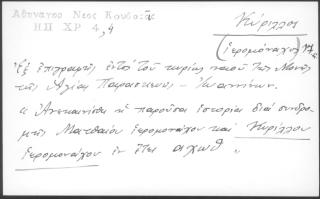 Αθυναγορ Νεος Κουβαρᾶς
ΗΠ ΧΡ 4,4
Κύριλλος
(ιερομόναχος)
Ἐξ ἐπιγραφῆς ἐντὸς τοῦ κυρίως ναοῦ τῆς Μονῆς
τῆς Ἁγίας Παρασκευῆς - Ἰωαννίνων.
"Ἀνεκαινίσθη ἡ παροῦσα ἱστορία διὰ συνδρο-
μῆς Ματθαίου ἱερομονάχου καὶ Κυρίλλου
ἱερομονάχου ἐν ἔτει αχωθ".